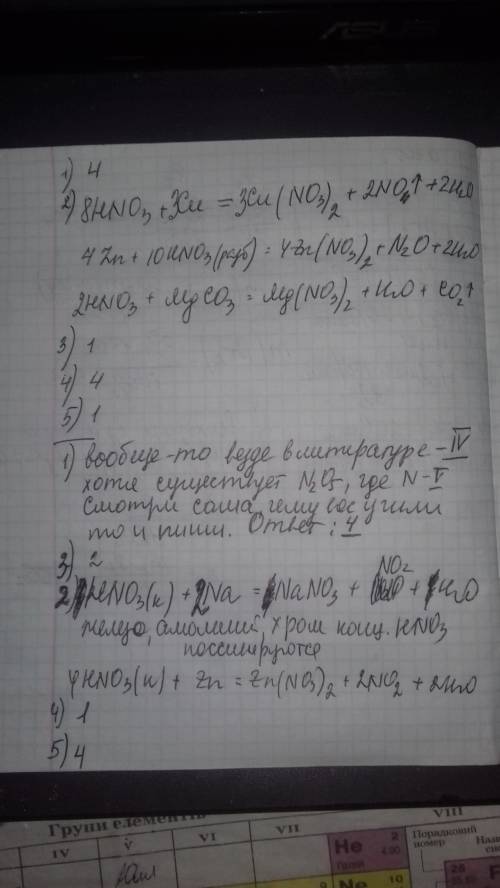 1) 4
2) 8HNO3 + 3Cu = 3Cu(NO3)2 + 2NO↑ + 2H2O
4Zn + 10HNO3(разб) = 4Zn(NO3)2 + N2O + 2H2O
2HNO3 + MgCO3 = Mg(NO3)2 + H2O + CO2↑
3) 1
4) 4
5) 1
1) вообще-то везде в литературе - IV
хотя существует N2O5, где N - V
Смотри сама, чему вас учили
то и пиши. Ответ: 4
3) 2
2) HNO3(к) + 2Na = NaNO3 + NO2 + H2O
железо, алюминий, хром конц. HNO3
пассивируются
4HNO3(к) + Zn = Zn(NO3)2 + 2NO2 + 2H2O
4) 1
5) 4
Групи елементів
VIII
IV V VI VII
Порядковий
номер
He 2
4.00
Ne 10
26